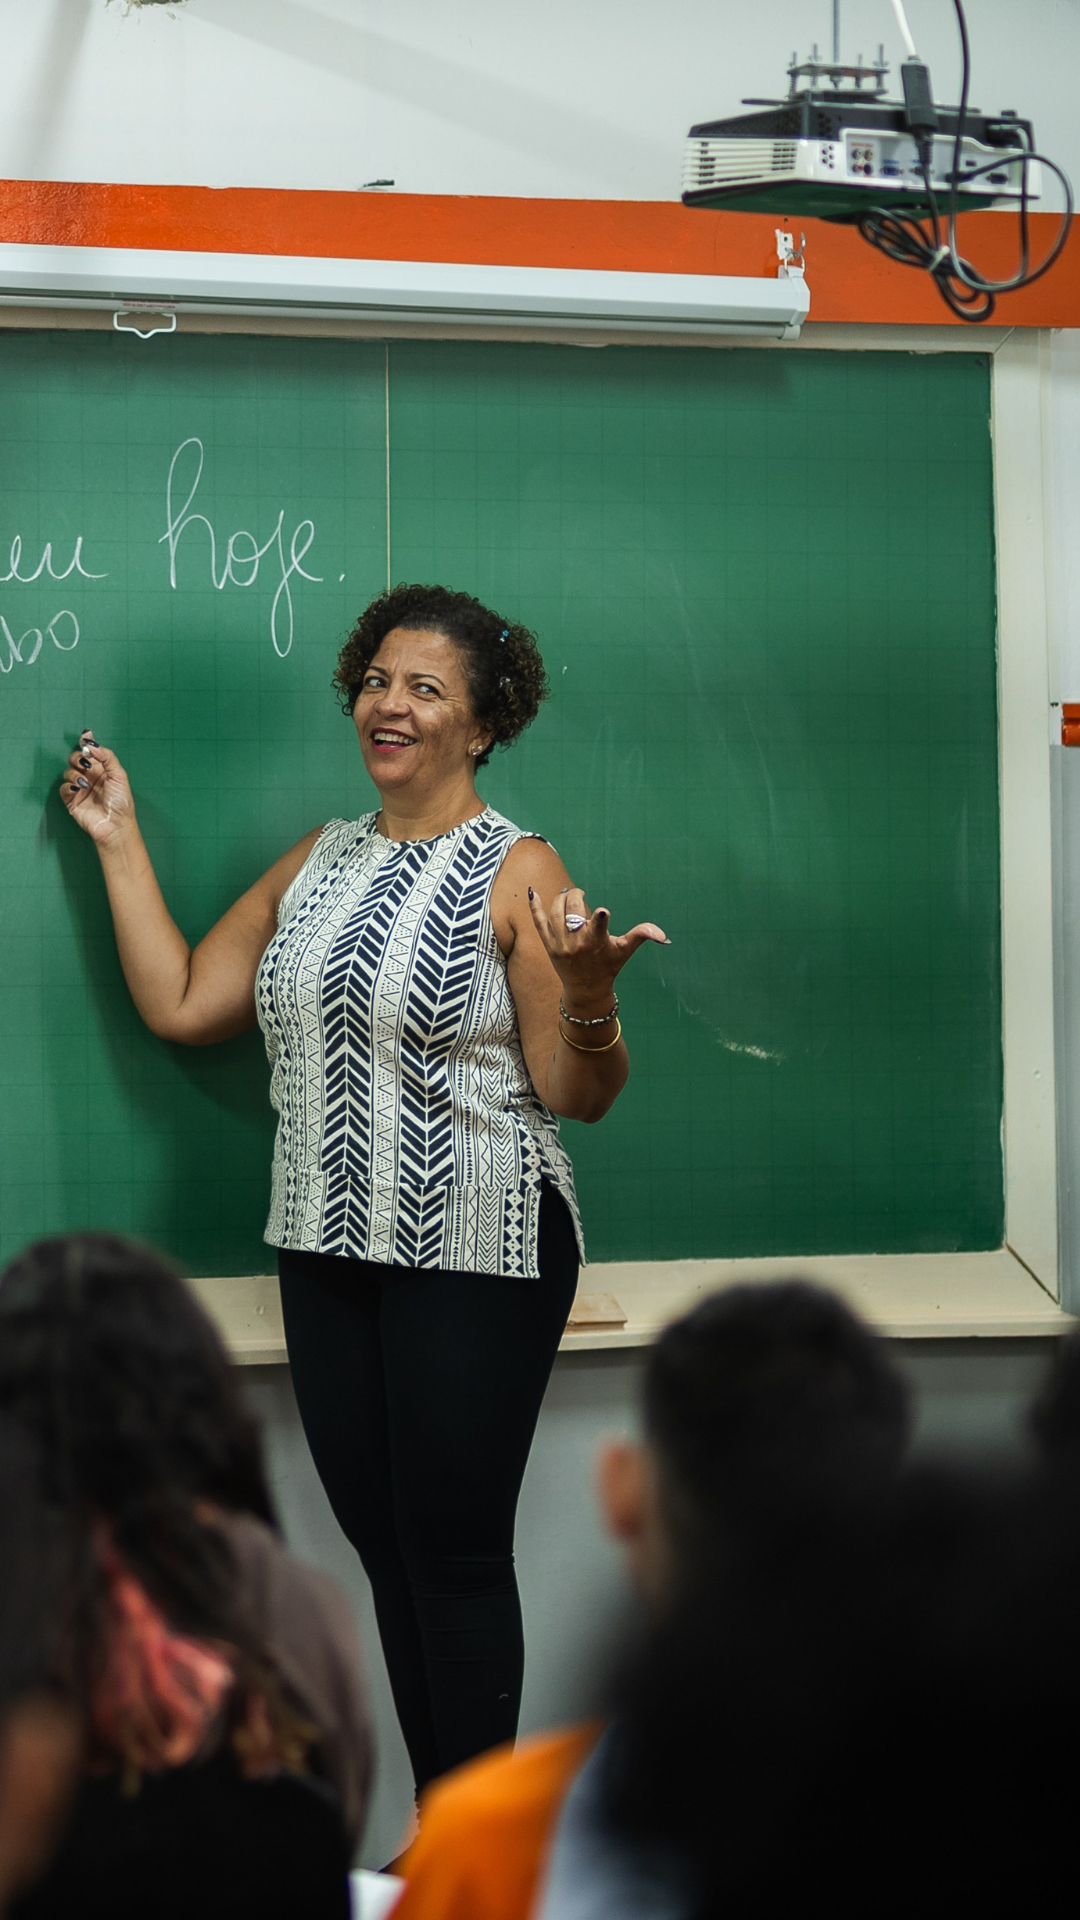 eu hoje.
bo